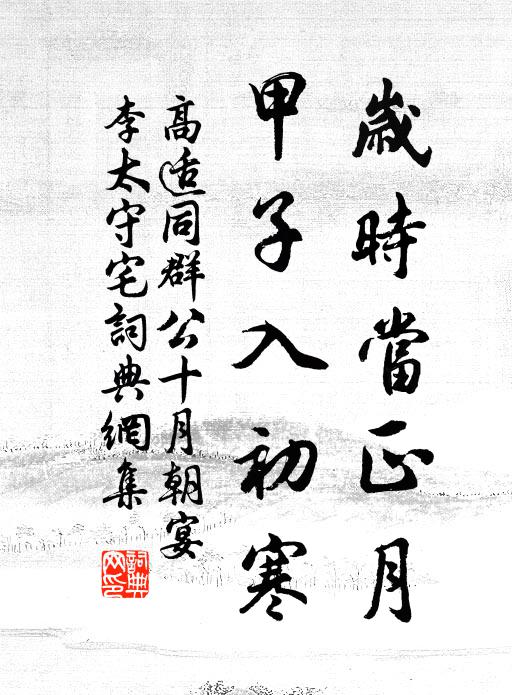 歲時當正月
甲子入初寒
高适同群公十月朝宴
李太守宅詞典網集
詞典
网印